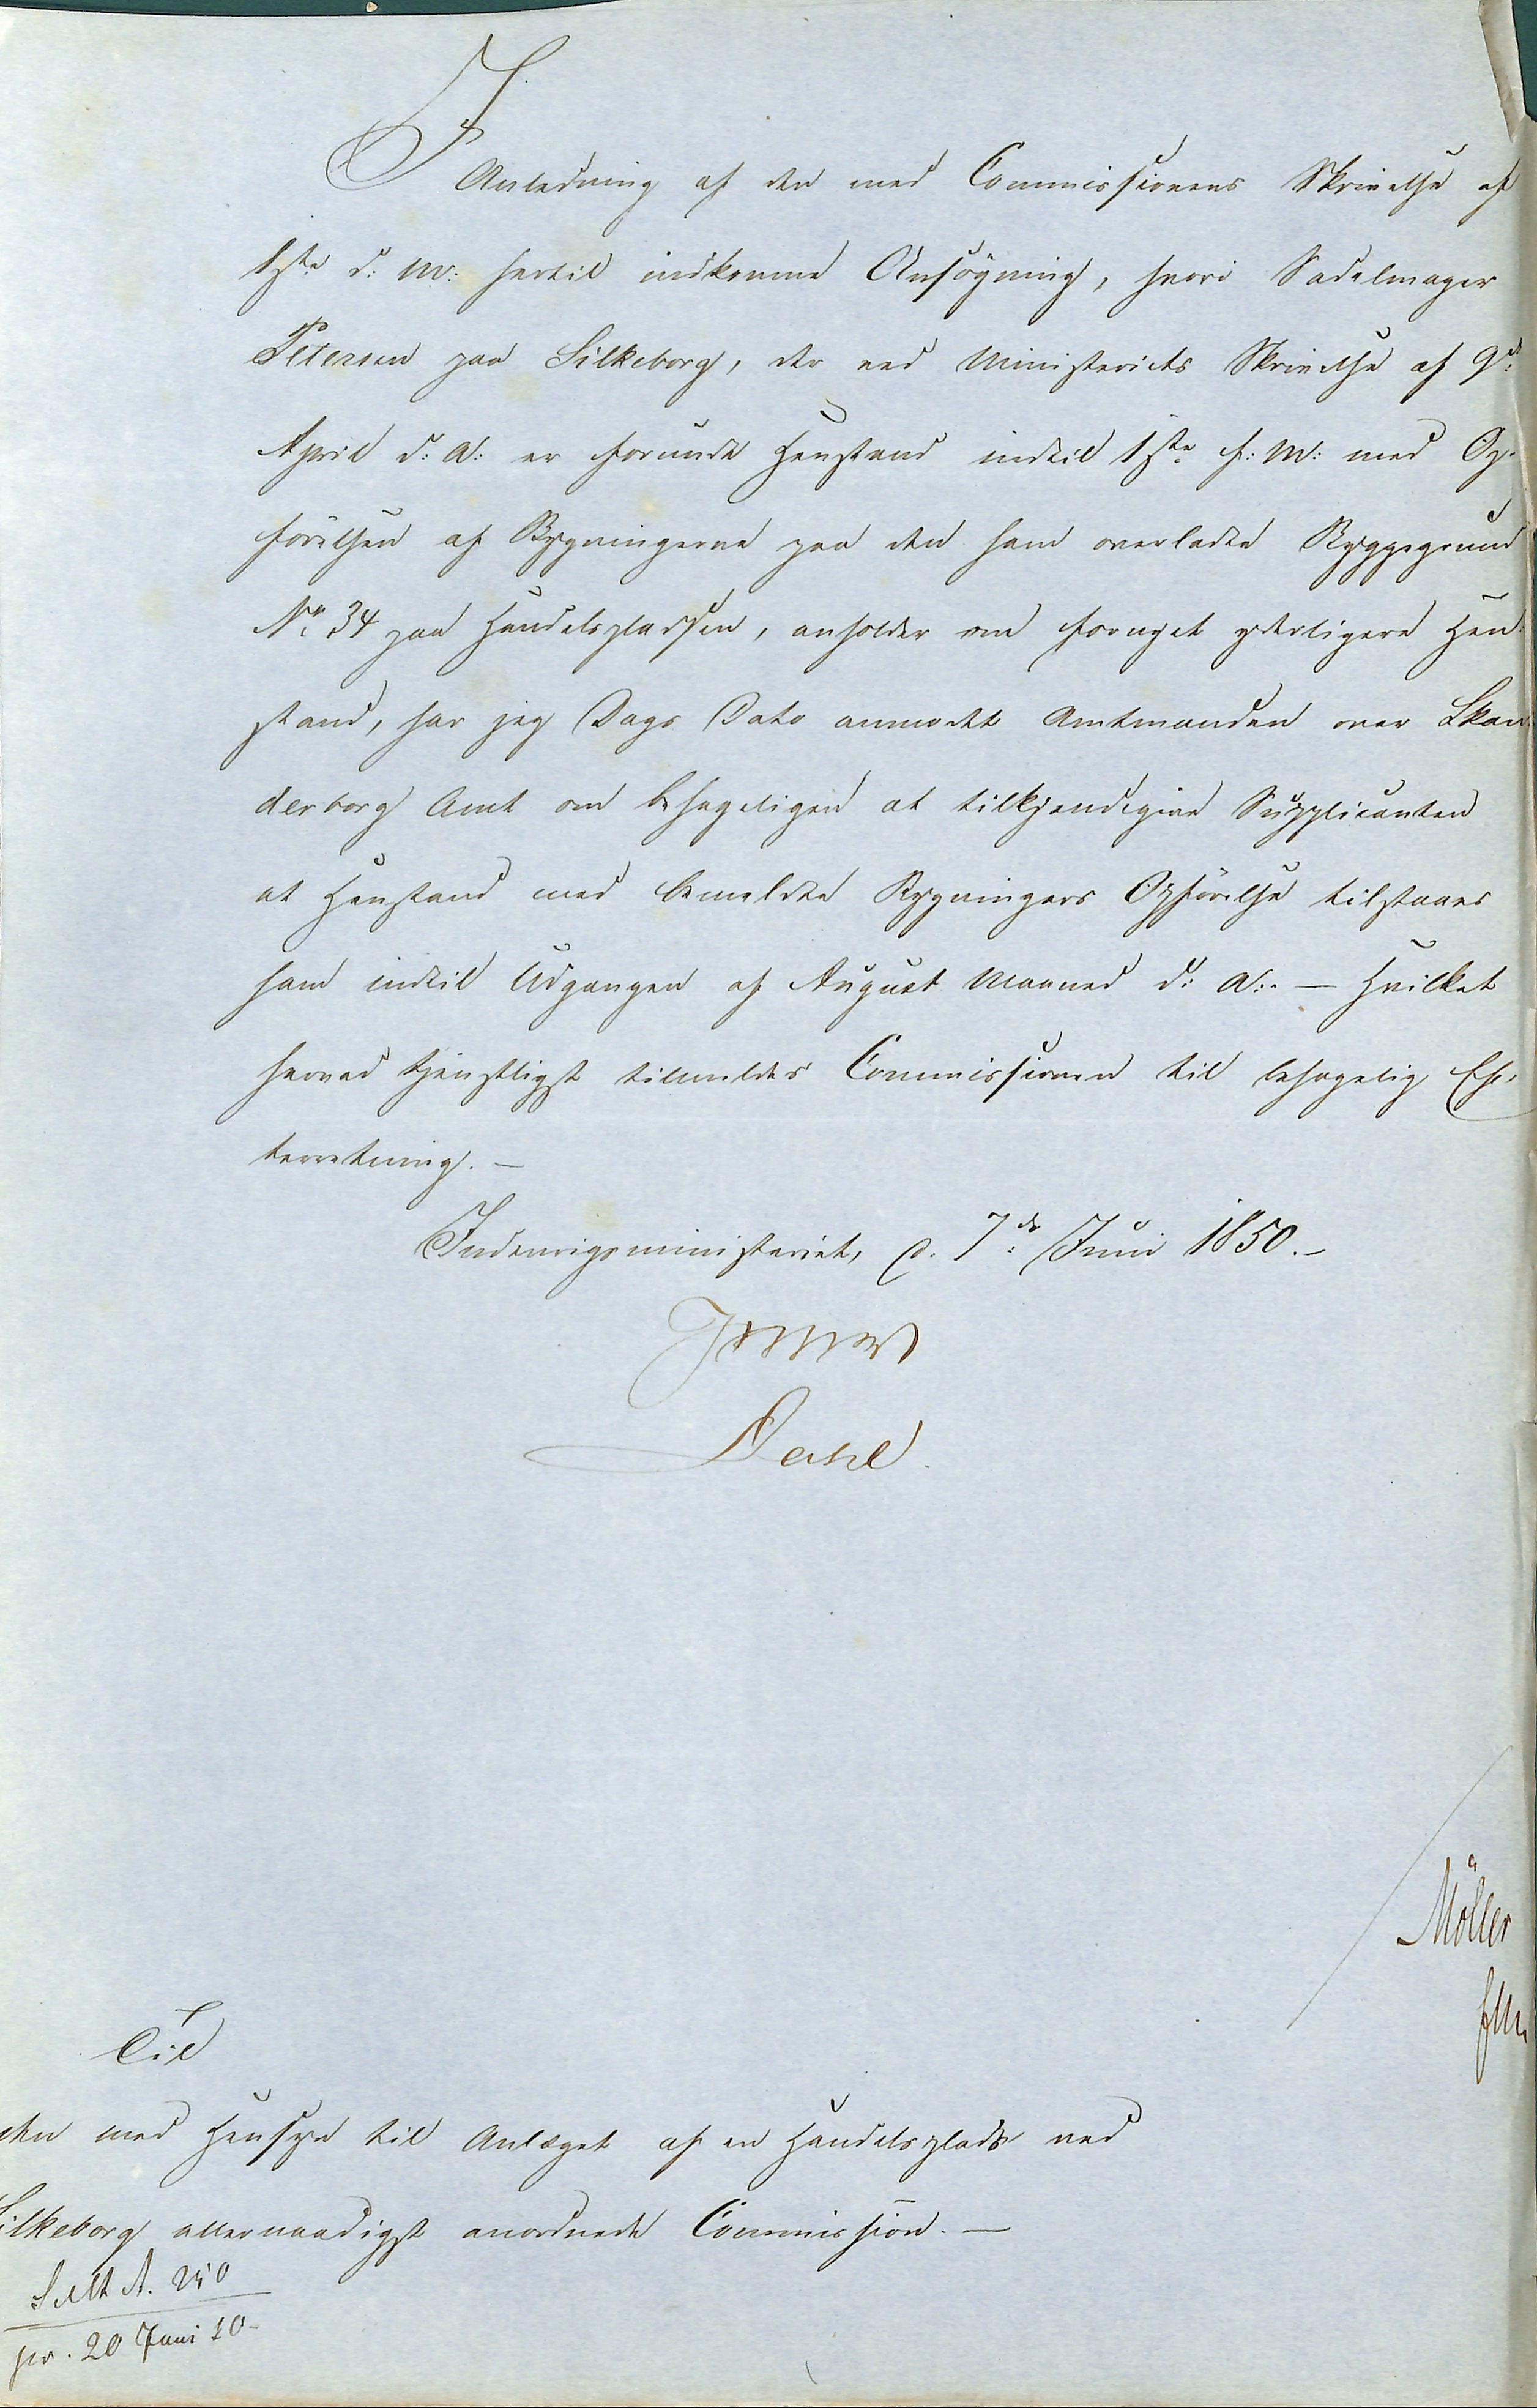 I
Anledning af den med Commissionens Skrivelse af
1ste d: M: hertil indkomne Ansøgning, hvori Sadelmager
Petersen paa Silkeborg, der ved Ministeriets Skrivelse af 9d:
April d: A: er forundt Henstand indtil 1ste f: M: med Op-
førelsen af Bygningerne paa den ham overladte Byggegrund
No 34 paa Handelspladsen, anholder om fornyet yderligere Hen-
stand, har jeg Dags Dato anmodet Amtmanden over Skan
derborg Amt om behageligen at tilkjendegive Supplicanten
at Henstand med bemeldte Bygningers Opførelse tilstaaes
ham indtil Udgangen af August Maaned d: A:. — Hvilket
herved tjenstligst tilmeldes Commissionen til behagelig Ef-
terretning. —
Indenrigsministeriet, d. 7de Juni 1850. —
Dahl.
Møller
Til
den med Hensyn til Anlæget af en Handelsplads ved
Silkeborg allernaadigst anordnede Commission. —
pr. 20 Juni 50